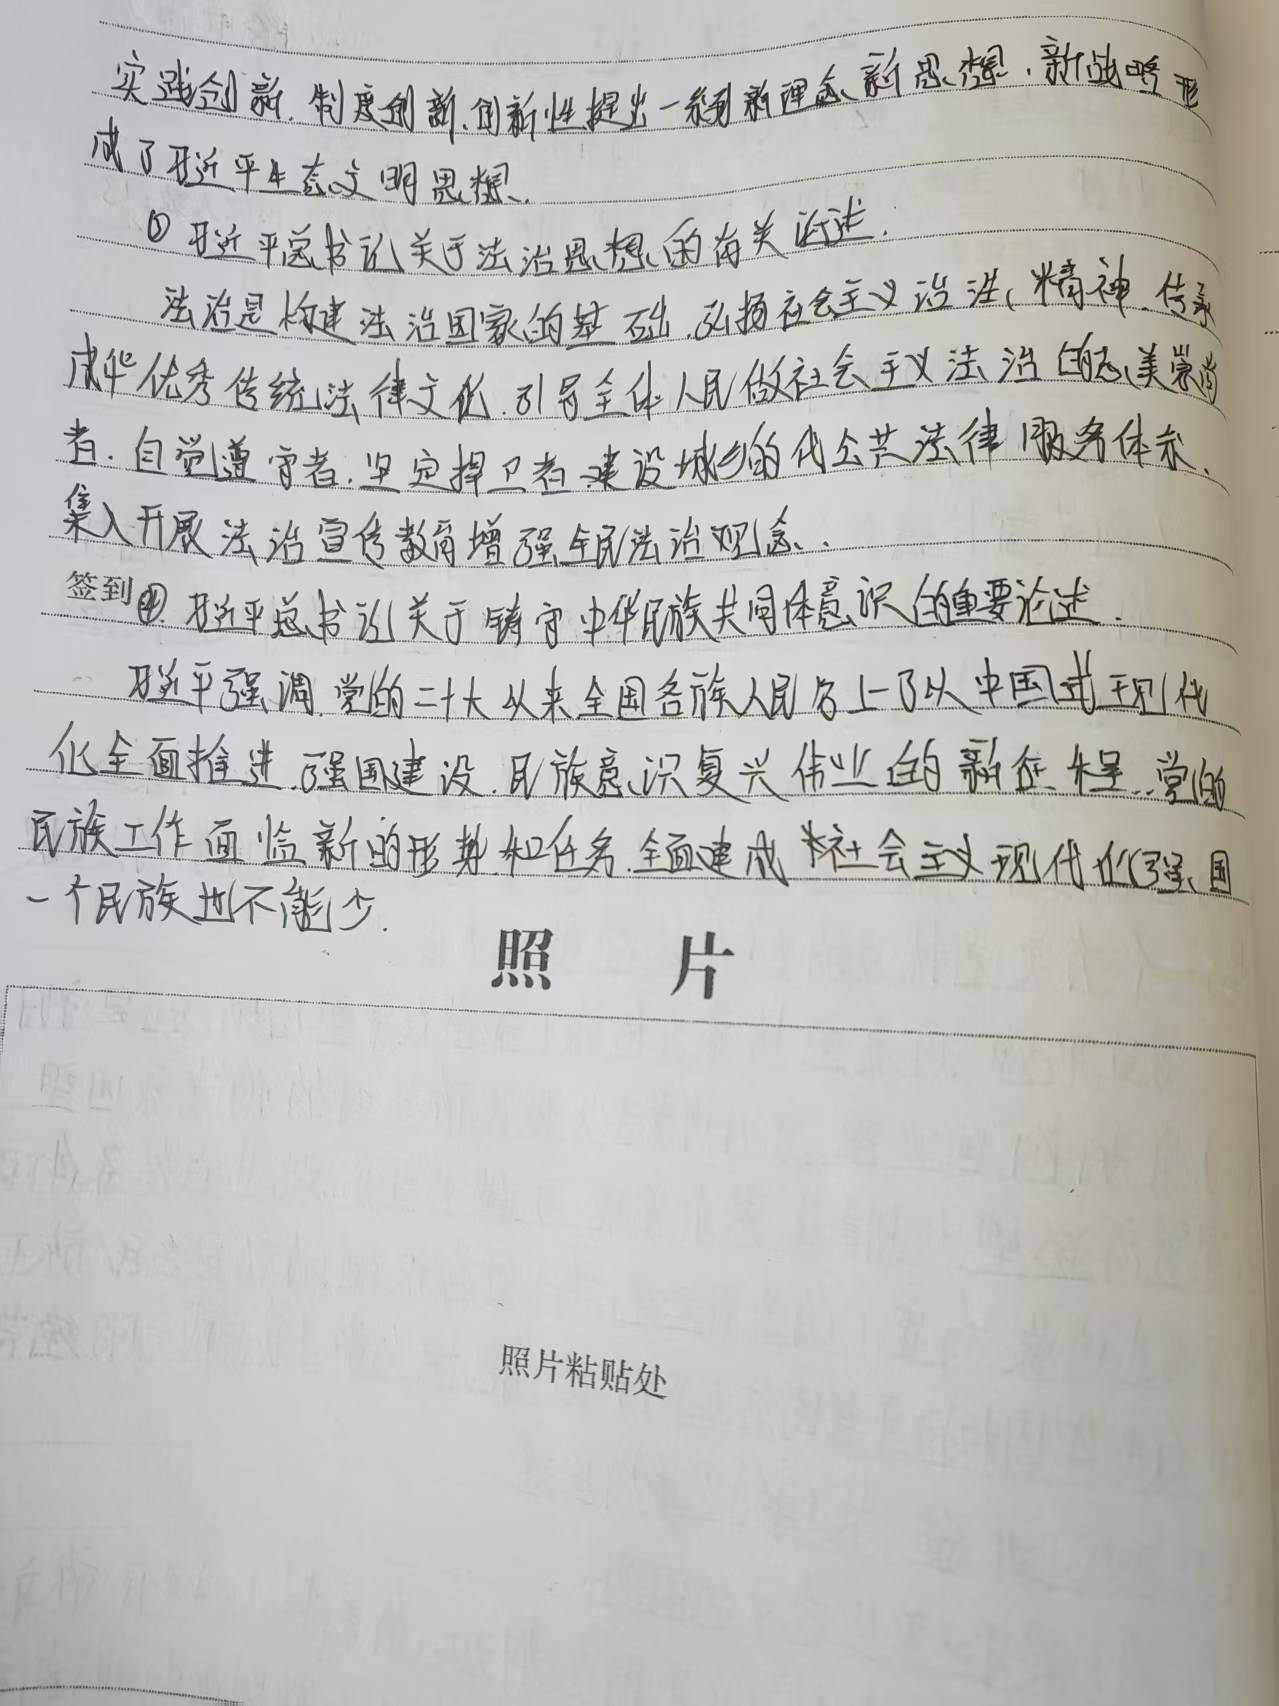 实践创新、制度创新、创新性提出一系列新理念、新思想、新战略形
成了习近平生态文明思想。
③ 习近平总书记关于法治思想的有关论述.
法治是构建法治国家的基础.弘扬社会主义治法、精神.传承
成华优秀传统法律文化.引导全体人民做社会主义法治的忠美崇尚
者.自觉遵守者.坚定捍卫者.建设城乡的代公共法律服务体系.
集入开展法治宣传教育增强全民法治观念.
签到 ④.习近平总书记关于铸守中华民族共同体意识的重要论述.
习近平强调.党的二十大以来全国各族人民台上了以中国式现代
化全面推进.强国建设.民族意识复兴伟业的新征程.党的
民族工作面临新的形势和任务.全面建成社会主义现代化强国
一个民族也不能少.
照 片
照片粘贴处